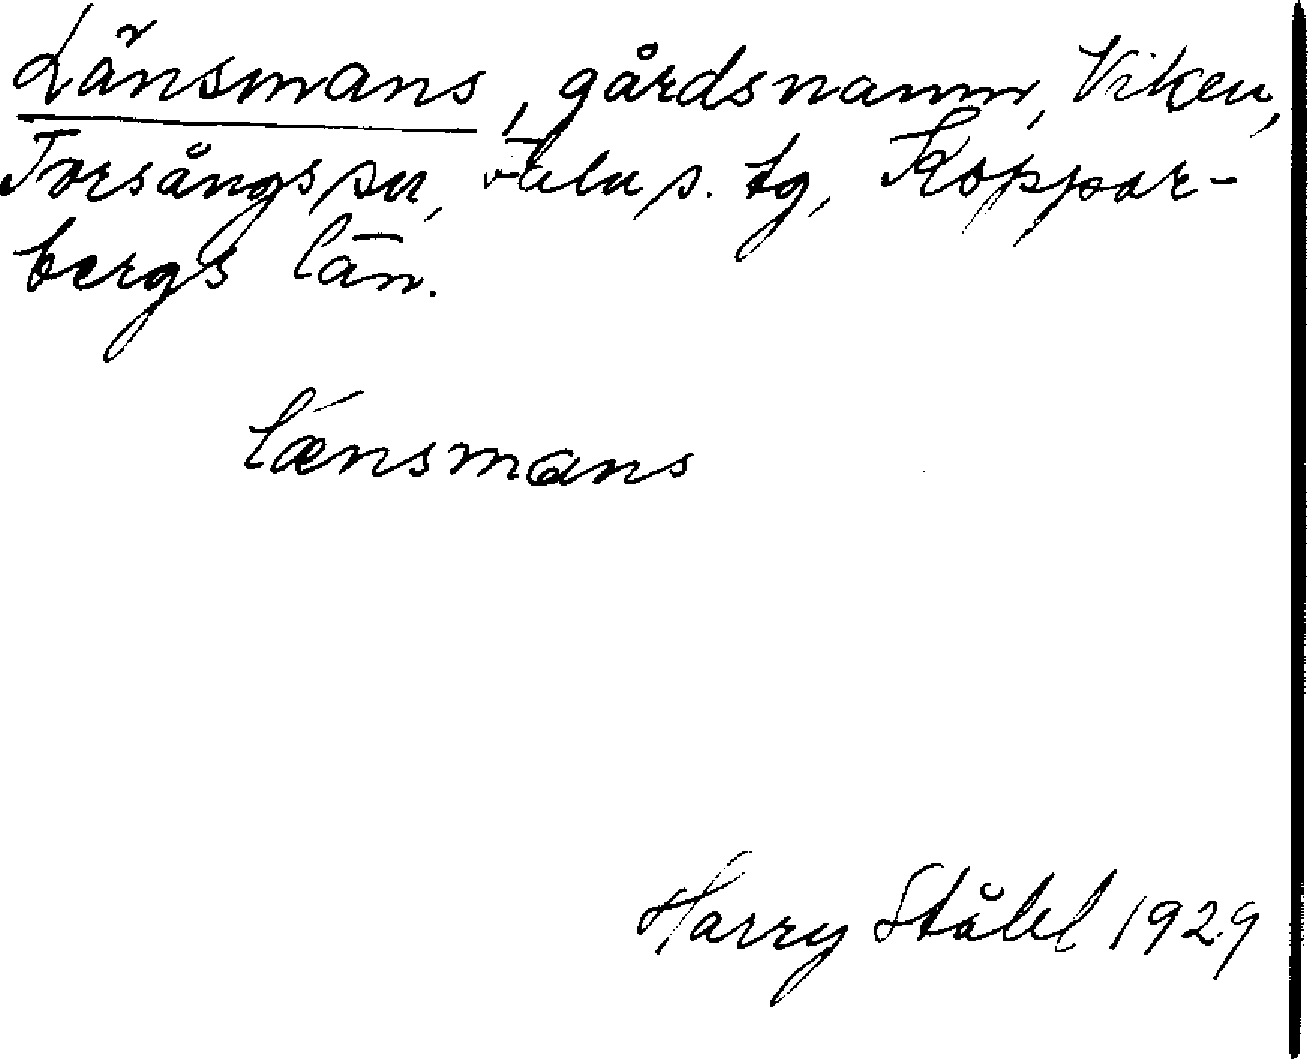 Länsmans, gårdsnamn, Viken,
Torsångs sn, Falu s. tg, Koppar-
bergs län.
lænsmans
Harry Ståhl 1929